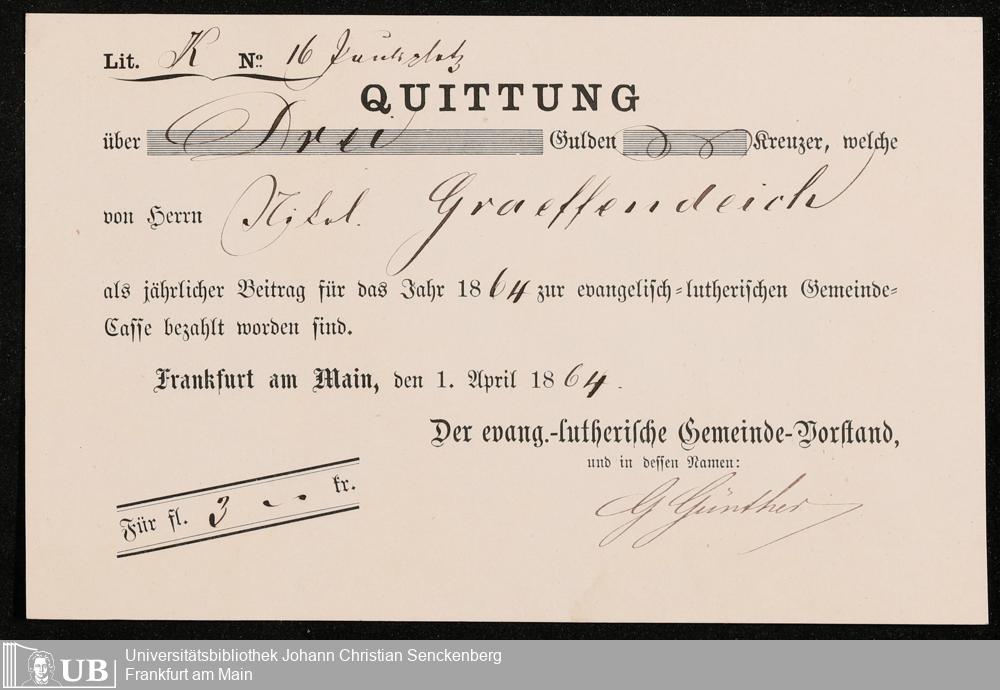 Lit. K No. 16 Paulsplatz
QUITTUNG
über Drei Gulden Kreuzer, welche
von Herrn Nikol. Graeffendeich
als jährlicher Beitrag für das Jahr 1864 zur evangelisch-lutherischen Gemeinde-
Casse bezahlt worden sind.
Frankfurt am Main, den 1. April 1864.
Der evang.-lutherische Gemeinde-Vorstand,
und in dessen Namen:
Für fl. 3 -- kr.
G Günther
UB
Universitätsbibliothek Johann Christian Senckenberg
Frankfurt am Main